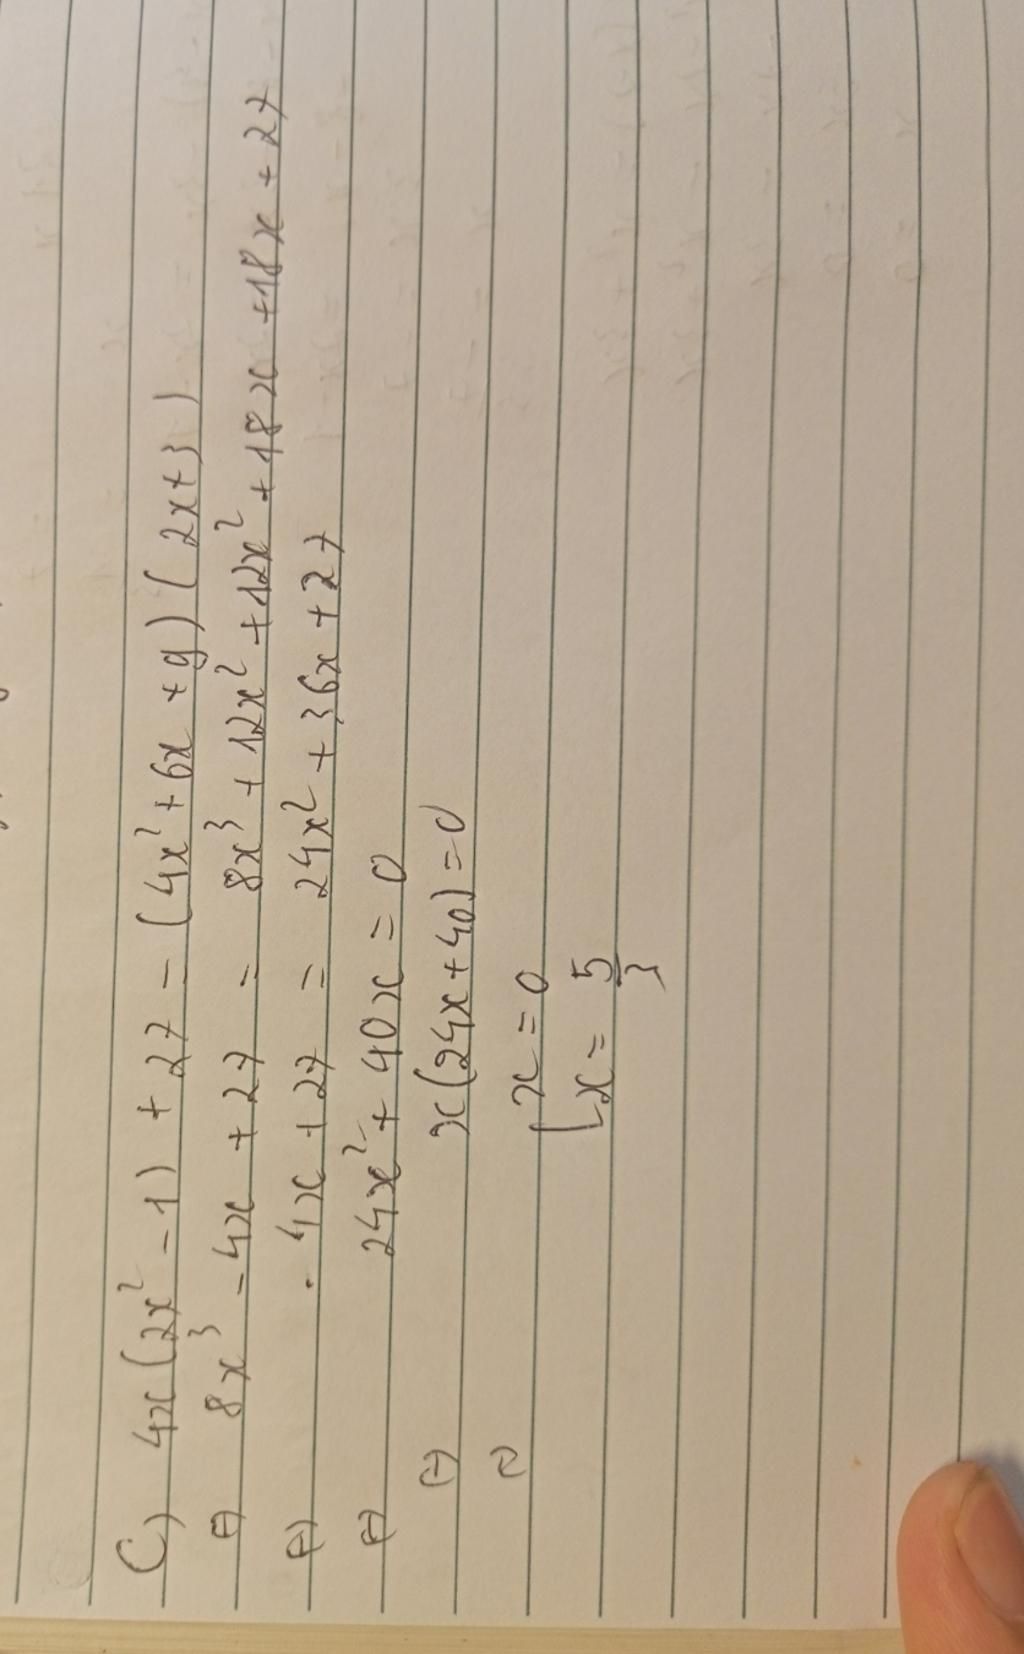 C) 4x(2x² - 1) + 27 = (4x² + 6x + 9)(2x + 3)
⇔ 8x³ - 4x + 27 = 8x³ + 12x² + 12x² + 18x + 18x + 27
⇔ - 4x + 27 = 24x² + 36x + 27
⇔ 24x² + 40x = 0
⇔ x(24x + 40) = 0
⇔ [x = 0
[x = 5/3